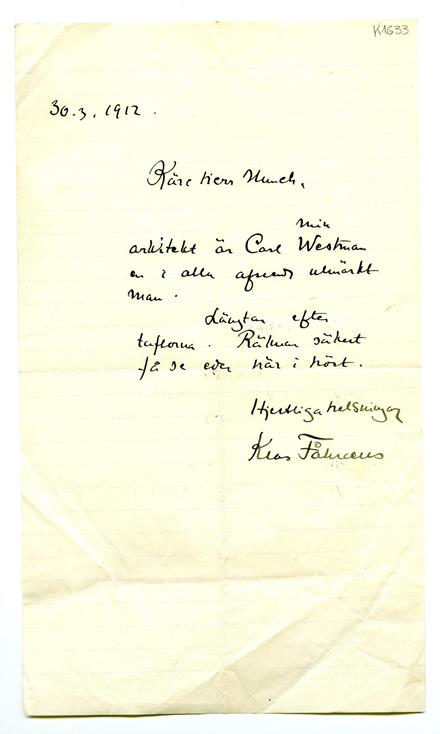 K1633
30.3.1912.
Käre Herr Munch,
Min
arkitekt är Carl Westman
en i alla afseeds utmärkt
man.
Längtar efter
taflorna. Räknar säkert
få se eder här i höst.
Hjertliga helsningar
Klas Fåhraeus